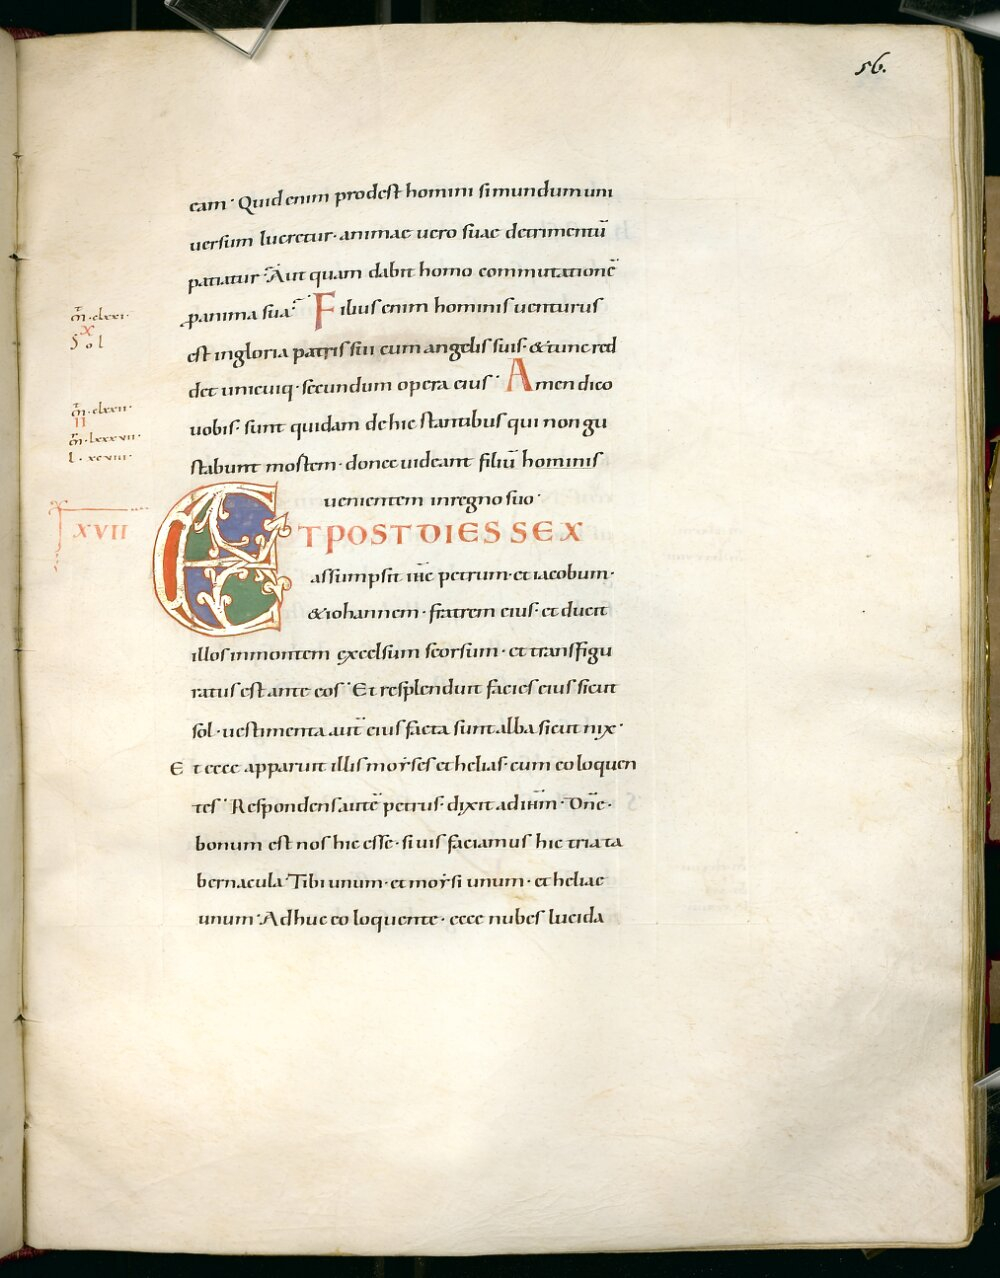 56.
eam · Quid enim prodest homini si mundum uni
uersum lucretur · animae uero suae detrimentū
patiatur · Aut quam dabit homo commutationē
panima sua · Filius enim hominis uenturus
est in gloria patris sui cum angelis suis · & tunc red
det unicuiq · secundum opera eius · Amen dico
uobis · sunt quidam de hic stantibus qui non gu
stabunt mostem · donec uideant filiū hominis
uenientem in regno suo ·
ET POST DIES SEX
assumpsit ihc petrum · et iacobum ·
& iohannem · fratrem eius · et ducit
illos in montem excelsum seorsum · et transfigu
ratus est ante eos · Et resplenduit facies eius sicut
sol · uestimenta aut eius facta sunt alba sicut nix ·
Et ecce apparuit illis moyses et helias · cum eo loquen
tes · Respondens autē petrus · dixit ad ihm · Dne ·
bonum est nos hic esse · si uis faciamus hic tria ta
bernacula · Tibi unum · et moysi unum · et heliae
unum · Adhuc eo loquente · ecce nubes lucida
m · clxxi ·
X
Sol
m · clxxii ·
II
m · lxxxvii ·
l · xcviii ·
XVII